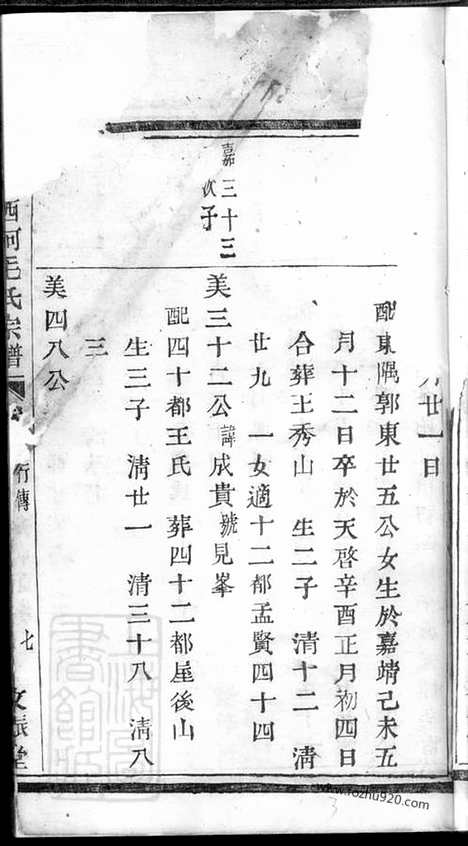 廿一日
配東隅郭東廿五公女生於嘉靖己未五
月十二日卒於天啓辛酉正月初四日
合葬王秀山 生二子 清十二 清
廿九 一女適十二都孟賢四十四
嘉三十三
次子
美三十二公諱成貴號見峯
配四十都王氏 葬四十二都屋後山
生三子 清廿一 清三十八 清八
三
美四八公
西河毛氏宗譜
行傳
七
文振堂
www.fozhu920.com